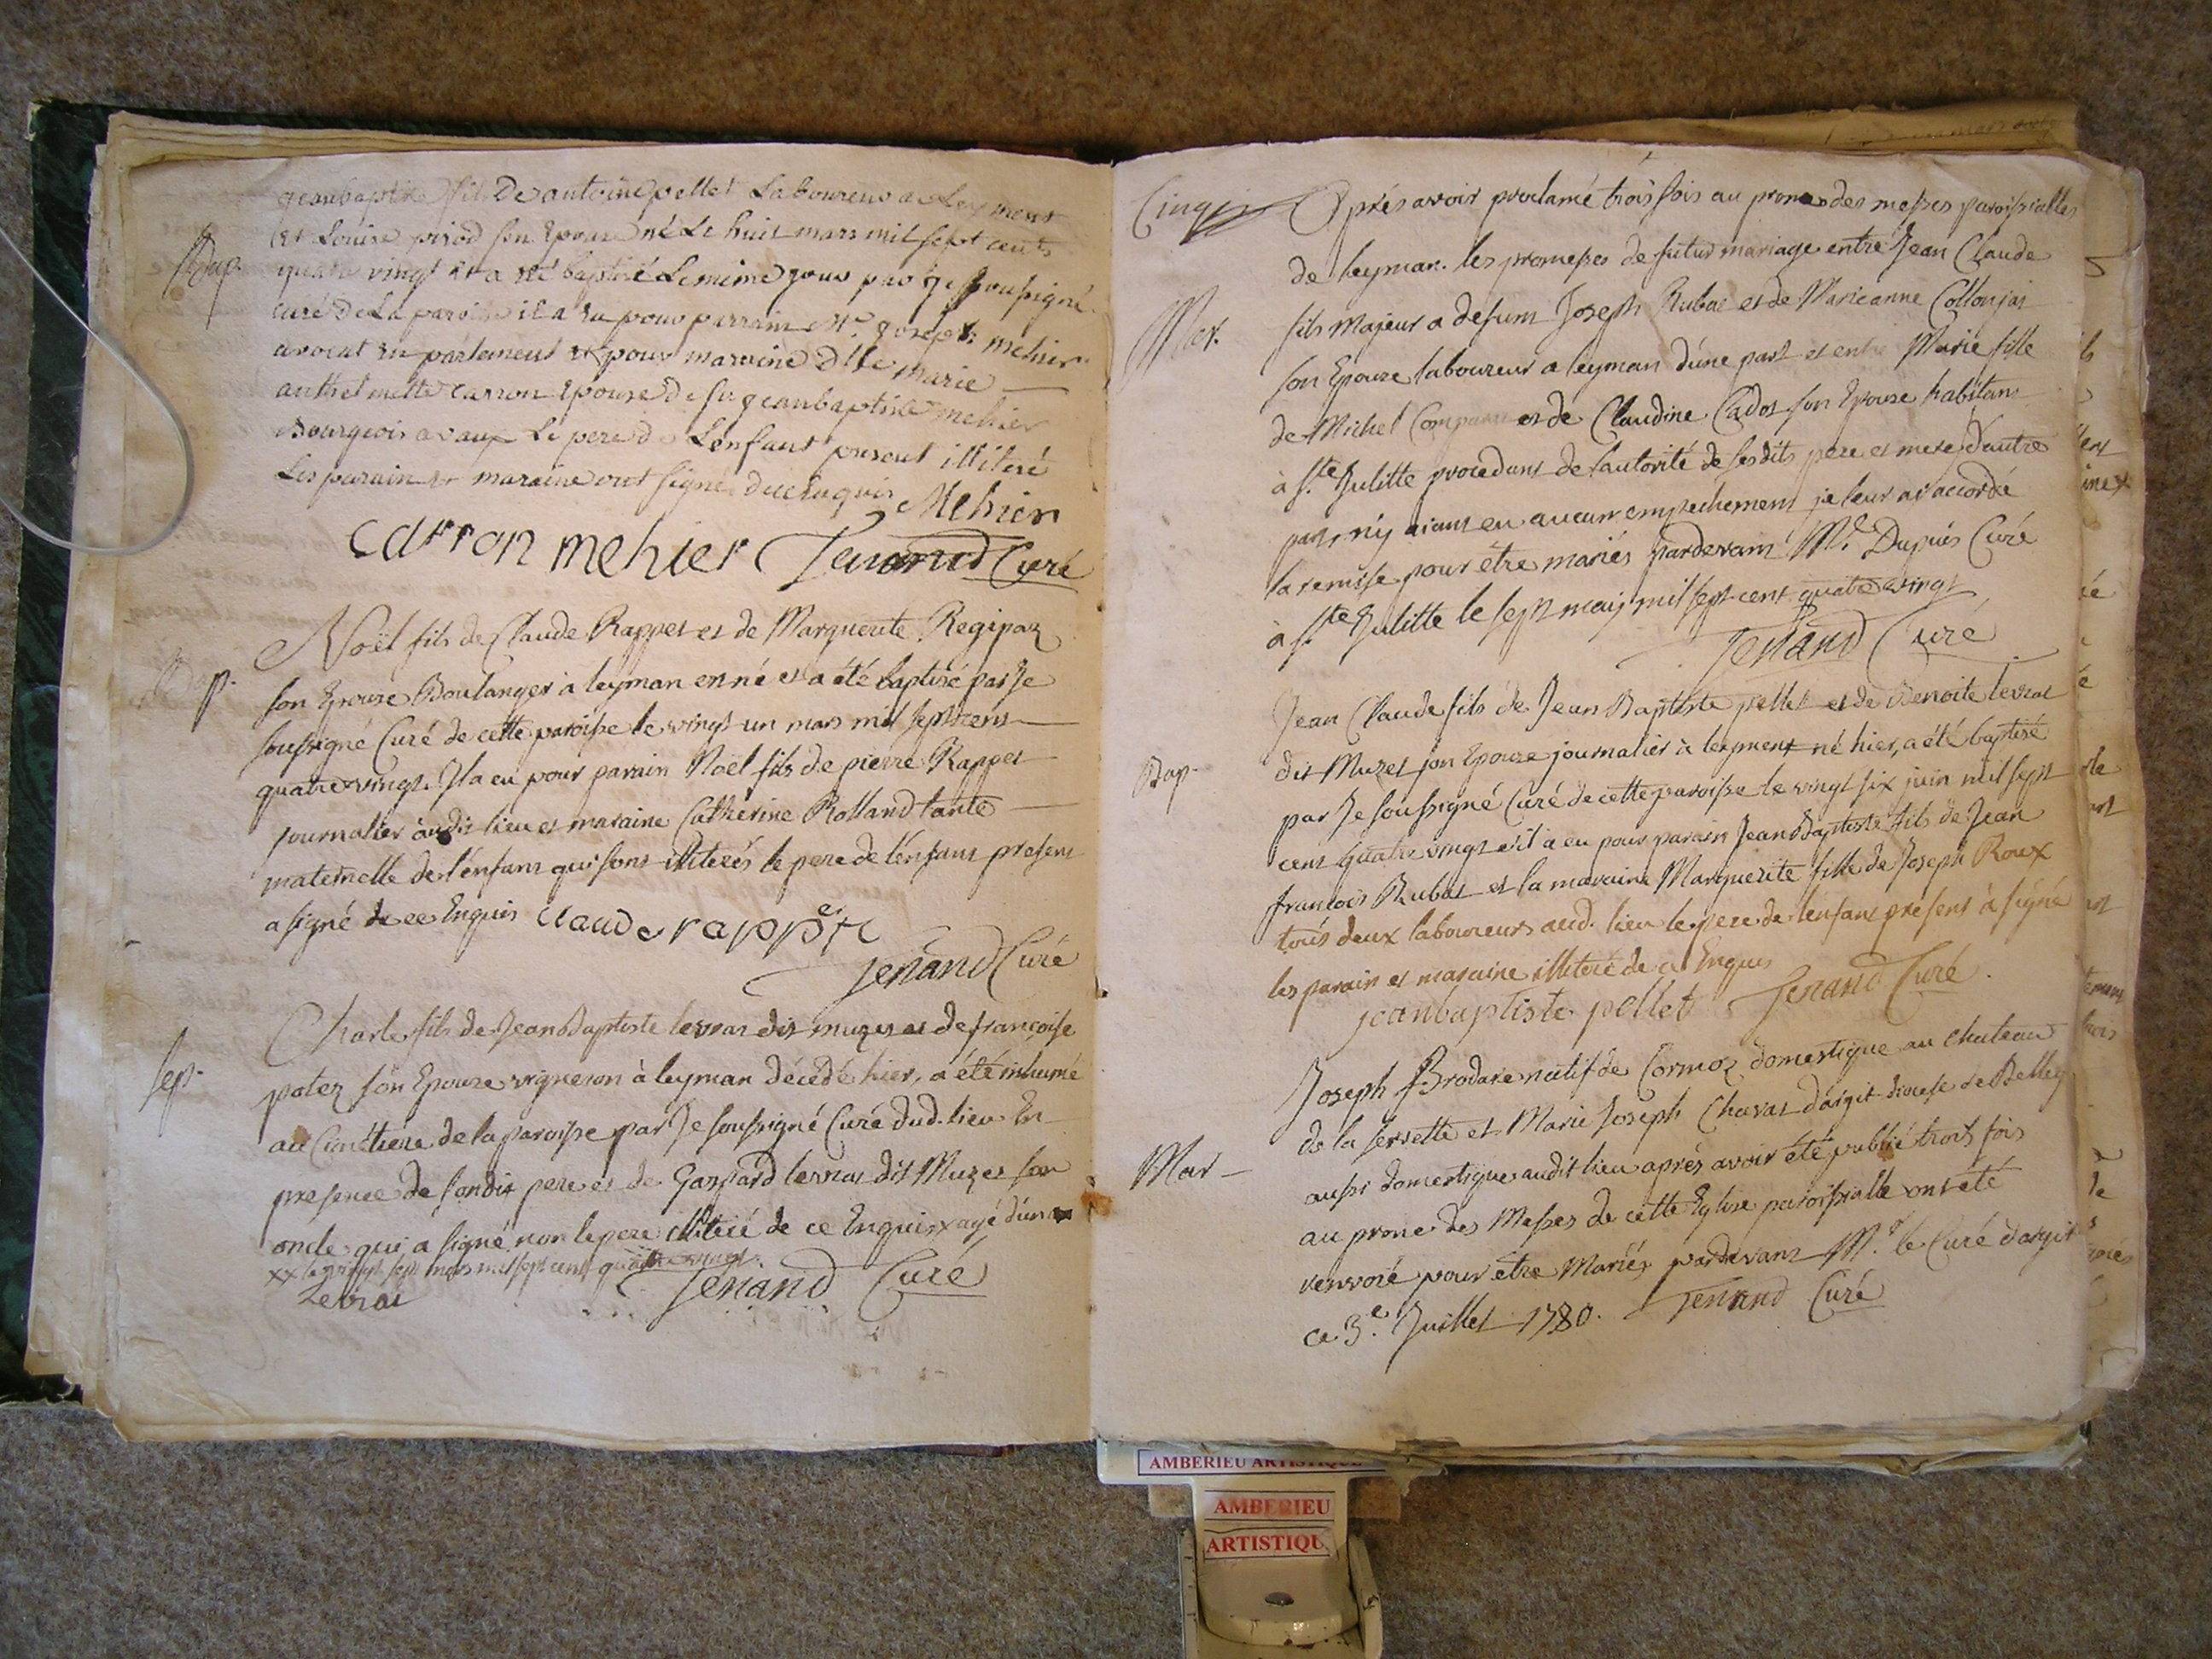 Bap.
geanbaptiste fils De antoine pellet Laboureur a Leyment
et Louise pirod son Epouse né Le huit mars mil sept cents
quatre vingt et a été baptisé Le mime jour par je soussigné
curé De La paroisse il a eu pour parrain Mr. joseph mehier
avocat en parlement et pour maraine Dlle marie
anthelmette carron Epouse De sr geanbaptiste mehier
Bourgeois a vaux Le pere De Lenfant present illiteré
Les parain et maraine ont signé dece enquis
Mehier
carron mehier Jenand Curé
Bap.
Noël fils de Claude Rappet et de Marguerite Regipaz
son Epouse Boulanger à leyman en né et a été baptisé par Je
soussigné Curé de cette paroisse le vingt un mars mil sept cens
quatre vingt. Il a eu pour parain Noël fils de pierre Rappet
journalier audit lieu et maraine Catherine Rolland tante
maternelle de l'enfant qui sont illiterés le pere de l'enfant present
a signé de ce Enquis claude rappet
Jenand Curé
Sep.
Charle fils de Jean Baptiste levrat dit muzet et de françoise
potez son Epouse vigneron à leyman décédé hier, a été inhumé
au Cimetiere de la paroisse par Je soussigné Curé dud. lieu En
presence de sondit pere et de Gaspard levrat dit Muzet son
oncle qui a signé non le pere illiteré de ce Enquis x agé d'un
xx le vingt sept mars mil sept cent quatre vingt.
Levrat Jenand Curé
Cinq
Mar.
Aprés avoir proclamé trois fois au prones des messes paroissialles
de leyman. les promesses de futur mariage entre Jean Claude
fils majeur a defunt Joseph Rubat et de Marieanne Collonjat
son Epouze laboureur a leyman d'une part et entre Marie fille
de Michel et de Claudine Cadot son Epouse habitans
à Ste. Julitte procedant de l'autorité de sesdits pere et mere d'autre
part, n'y aiant eu aucun empechement je leur ai accordé
la remise pour être mariés pardevant Mr. Dupuis Curé
à Ste Julitte le sept may mil sept cent quatre vingt
Jenand Curé
Bap.
Jean Claude fils de Jean Baptiste pellet et de Benoite levrat
dit Muzet son Epouze journalier à leyment né hier, a été baptisé
par Je soussigné Curé de cette paroisse le vingt six juin mil sept
cent quatre vingt et il a eu pour parain Jean Baptiste fils de Jean
francois Rubat et la maraine Marguerite fille de Joseph Roux
tous deux laboureurs aud. lieu le pere de l'enfant présent à signé
les parain et maraine illiteré de ce Enquis
jeanbaptiste pellet Jenand Curé.
Mar
Joseph Brodare natif de Cormoz domestique au chateau
de la servette et Marie Joseph Chavat d'argit diocese de Belley
aussi domestique audit lieu aprés avoir été publié trois fois
au prone des Messes de cette Eglise paroissialle ont été
renvoié pour être Mariés pardevant Mr. le Curé d'argit
ce 3e. Juillet 1780. Jenand Curé
AMBERIEU ARTISTIQUE
AMBERIEU
ARTISTIQU